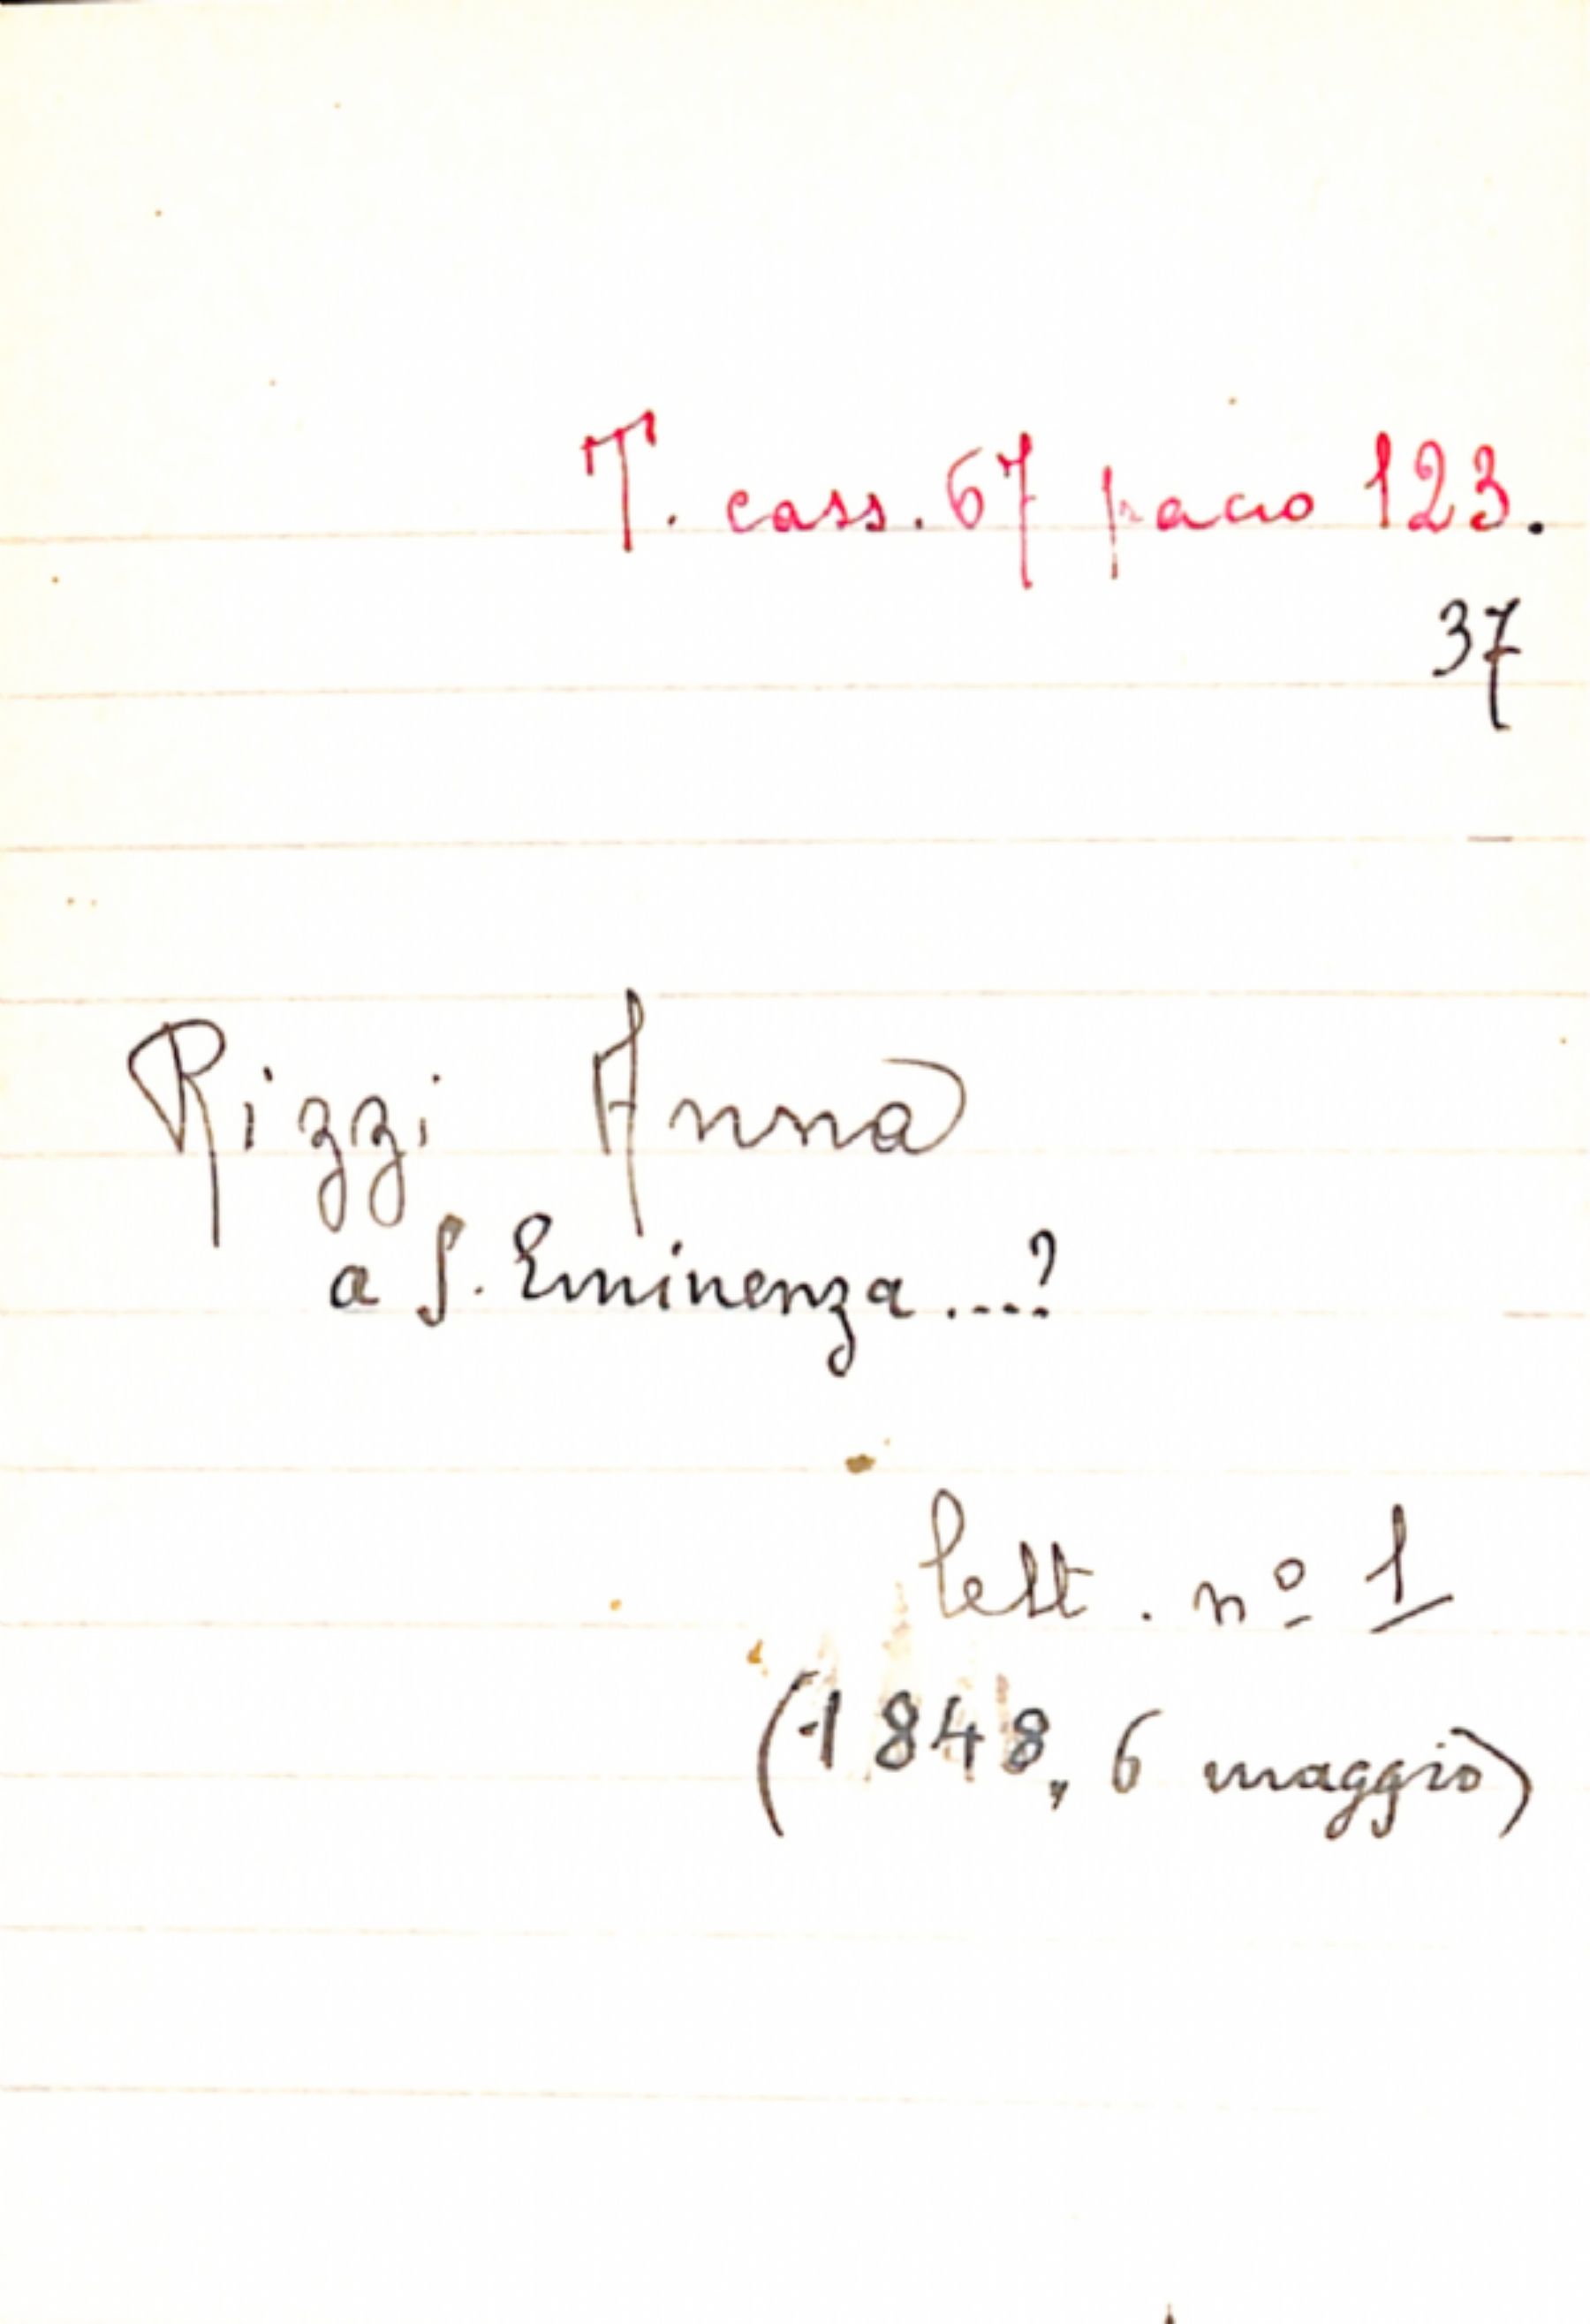 T. cass. 67 pacco 123.
37
Rizzi Anna
a S. Eminenza....?
lett. nº 1
(1848, 6 maggio)